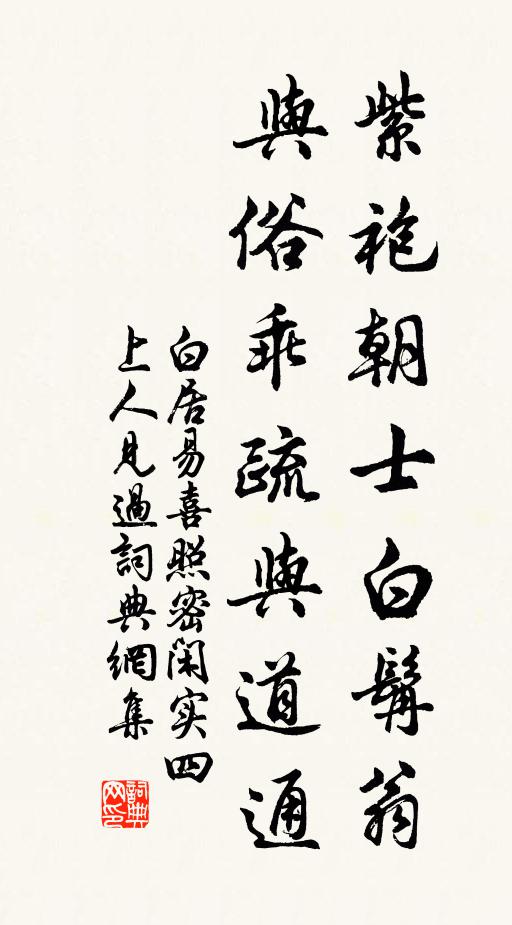 紫袍朝士白髯翁
與俗乖疏與道通
白居易喜照密閑实四
上人見過詞典網集
詞典网印